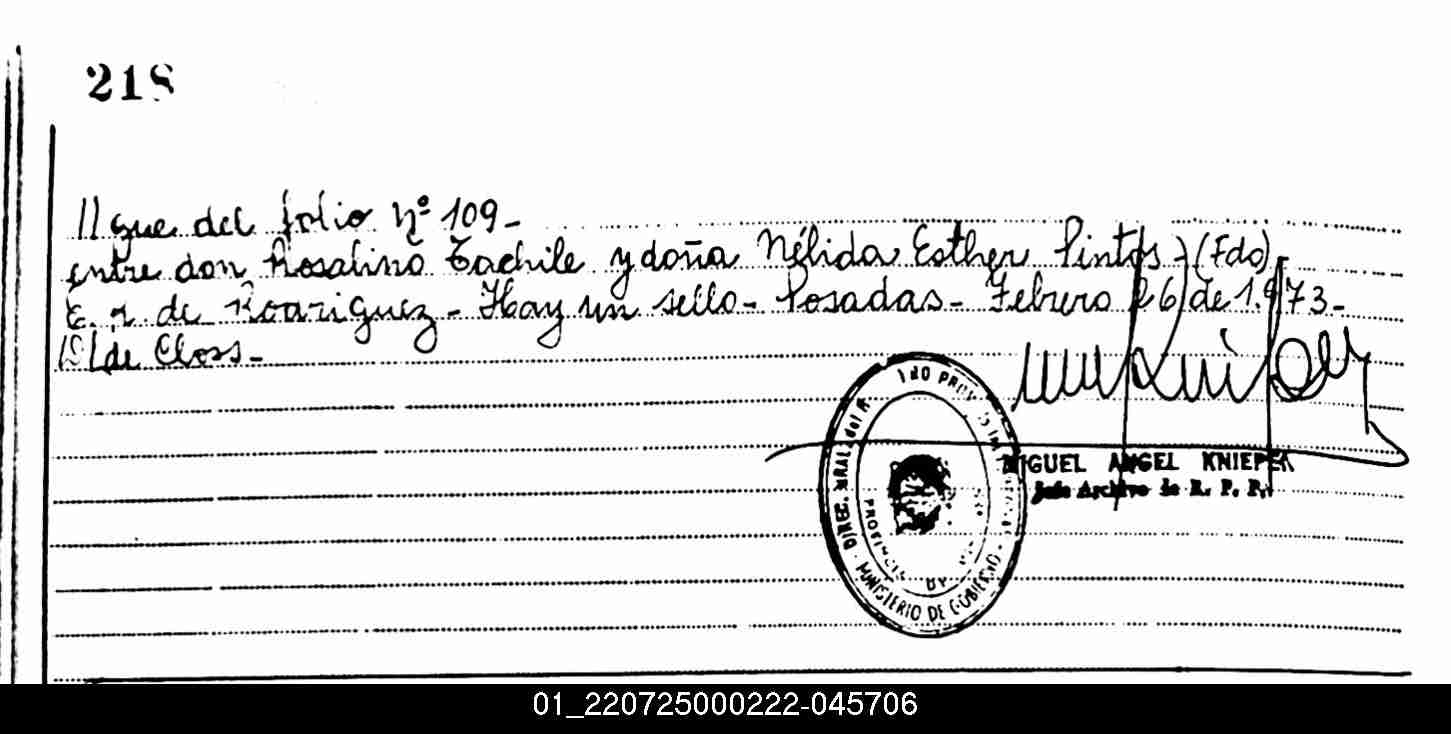 218
//gue del folio Nº 109-
entre don Rosalino Tachile y doña Nélida Esther Pintos-(Fdo)
E. R. de Rodriguez- Hay un sello- Posadas- Febrero 26 de 1.973-
de Closs-
MIGUEL ANGEL KNIEPER
Jefe Archivo de R. P. P.
DIREC. GRAL. del
MINISTERIO DE GOBIERNO
01_220725000222-045706